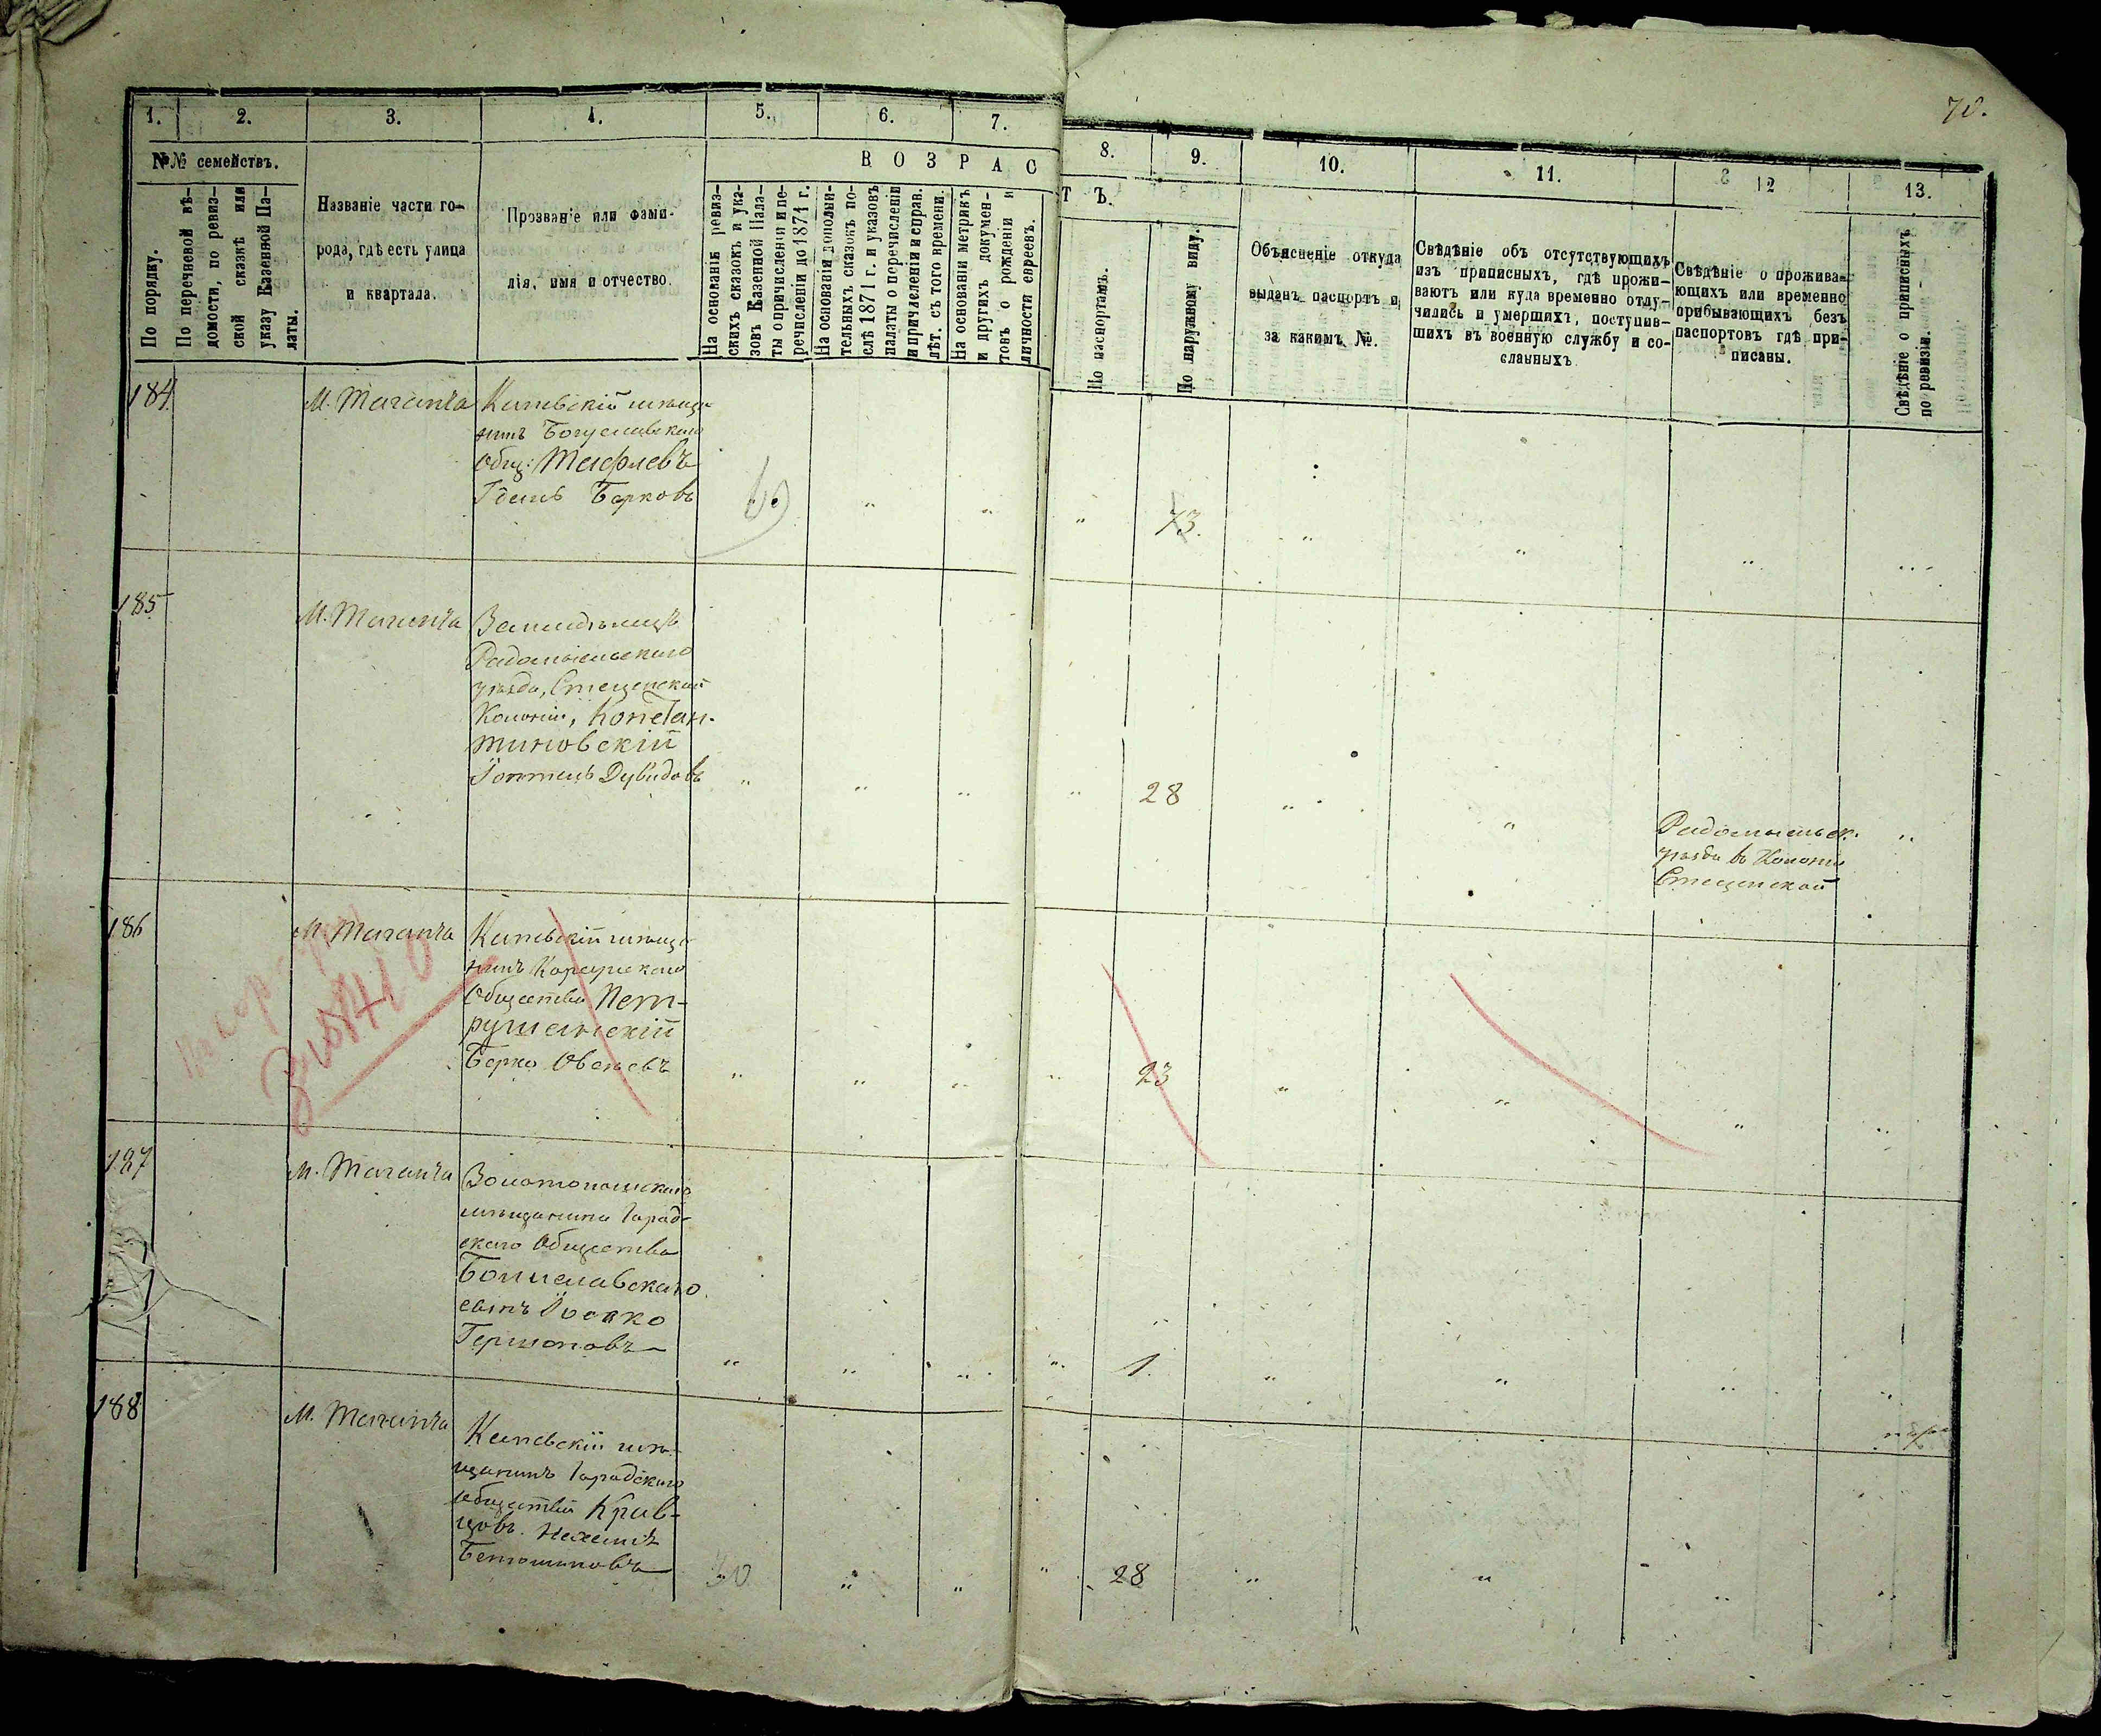 78.
1. 2. 3. 4. 5. 6. 7. 8. 9. 10. 11. 12 13.
№№ семействъ.
В О З Р А С Т Ъ.
По порядку.
По перечневой вѣ-
домости, по ревиз-
ской сказкѣ или
указу Казенной Па-
латы.
Названіе части го-
рода, гдѣ есть улица
и квартала.
Прозваніе или фами-
лія, имя и отчество.
На основаніи ревиз-
скихъ сказокъ и ука-
зовъ Казенной Пала-
ты о причисленіи и пе-
речисленіи до 1871 г.
На основаніи дополни-
тельныхъ сказокъ по-
слѣ 1871 г. и указовъ
палаты о перечисленіи
и причисленіи и справ.
лѣт. съ того времени.
На основаніи метрикъ
и другихъ докумен-
товъ о рожденіи и
личности евреевъ.
По паспортамъ.
По наружному виду.
Объясненіе откуда
выданъ паспортъ и
за какимъ №.
Свѣдѣніе объ отсутствующихъ
изъ приписныхъ, гдѣ прожи-
ваютъ или куда временно отлу-
чились и умершихъ, поступив-
шихъ въ военную службу и со-
сланныхъ
Свѣдѣніе о прожива-
ющихъ или временно
прибывающихъ безъ
паспортовъ гдѣ при-
писаны.
Свѣдѣніе о приписныхъ
по ревизіи.
184
М. Таганча
Каневскій мѣща-
нинъ Богуславскаго
Общ:
Берковъ
73.
185
М. Таганча
Земледѣлецъ
Радомысльскаго
уѣзда, Стеценской
Колоніи, Констан-
тиновскій
Дувидовъ
28
Радомысльск.
уѣзда въ Колоніи
Стеценской
186
М. Таганча
Каневскій мѣща-
нинъ Корсунскаго
Общества Пет-
рушанскій
Берко Овсеевъ
23
187
М. Таганча
Золотоношскаго
мѣщанина Город-
скаго Общества
Богуславскаго
сынъ Іосько
Гершоновъ
1.
188
М. Таганча
Каневскій мѣ-
щанинъ Городскаго
общества Крав-
цовъ
30
28